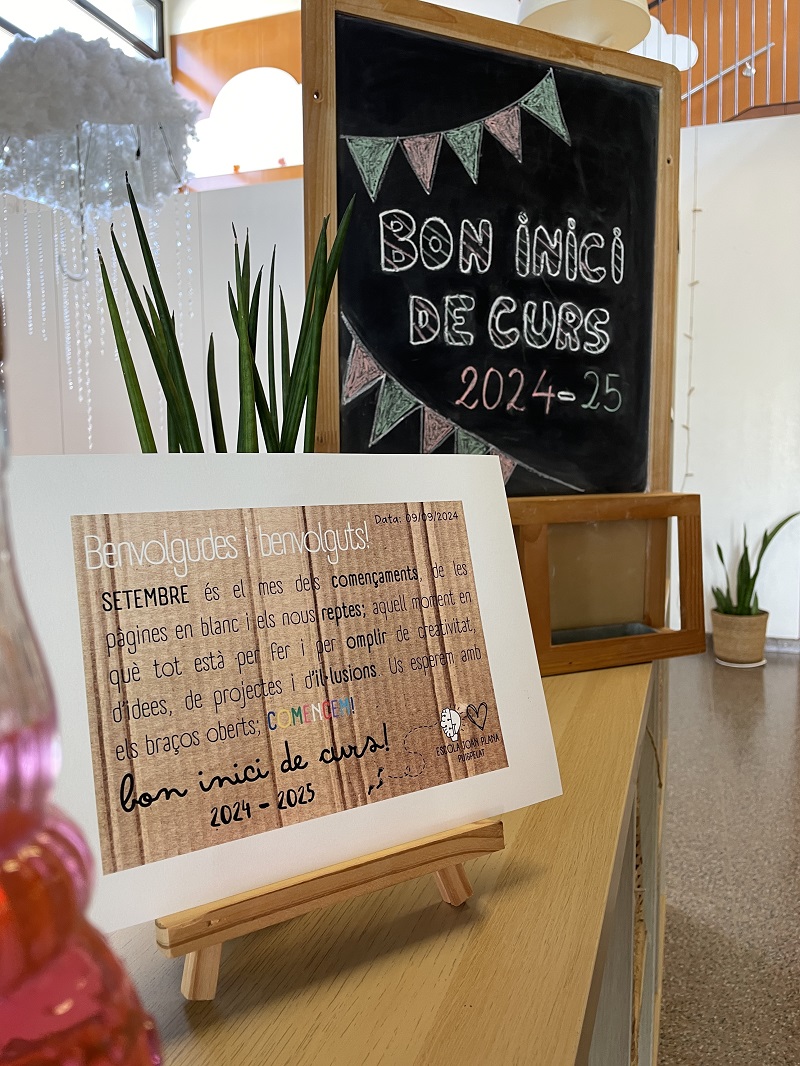 BON INICI
DE CURS
2024-25
Data: 09/09/2024
Benvolgudes i benvolguts!
SETEMBRE és el mes dels començaments, de les
pàgines en blanc i els nous reptes; aquell moment en
què tot està per fer i per omplir de creativitat,
d'idees, de projectes i d'il·lusions. Us esperem amb
els braços oberts; COMENCEM!
bon inici de curs!
2024 - 2025
ESCOLA JOAN PLANA
PUIGPELAT